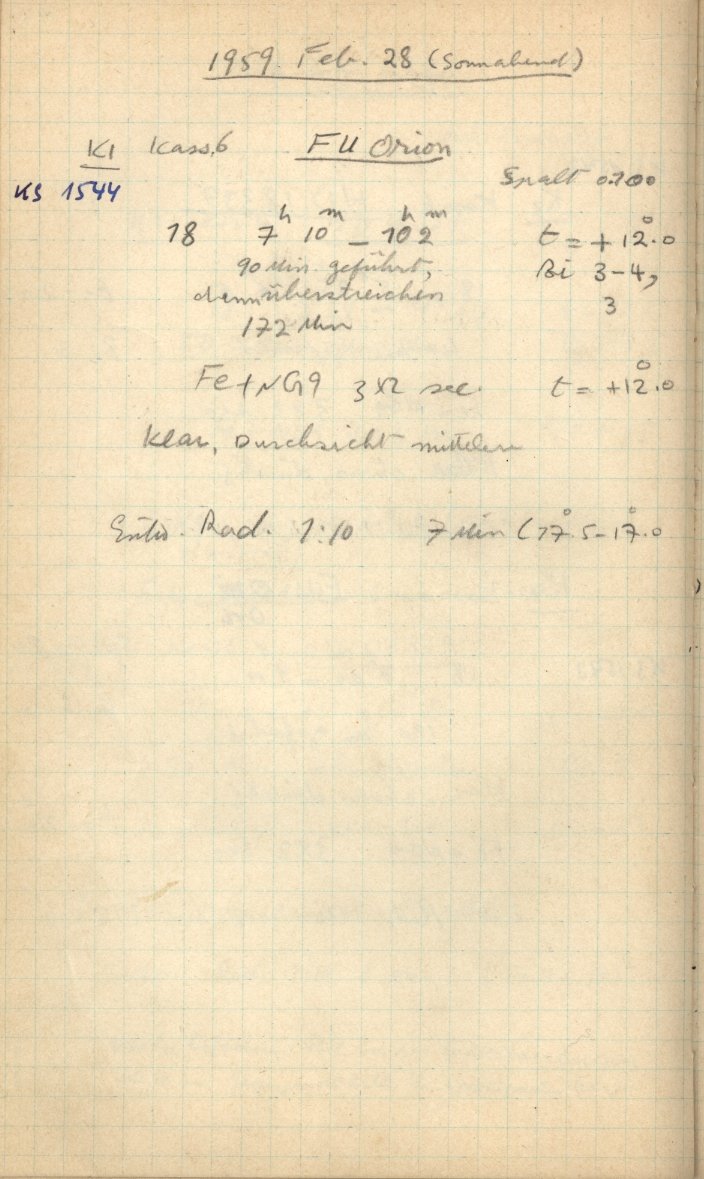 1959 Feb. 28 (Sonnabend)
K1 Kass. 6 FU Orion
Spalt 0.100
KS 1544
18 7h 10m – 10h 2m t = +12°.0
90 Min geführt, Bi 3–4,
dann überstreichen 3
172 Min
Fe+NG9 3x2 sec. t = +12°.0
Klar, Durchsicht mittelm
Entw. Rod. 1:10 7 Min (17°.5–17°.0